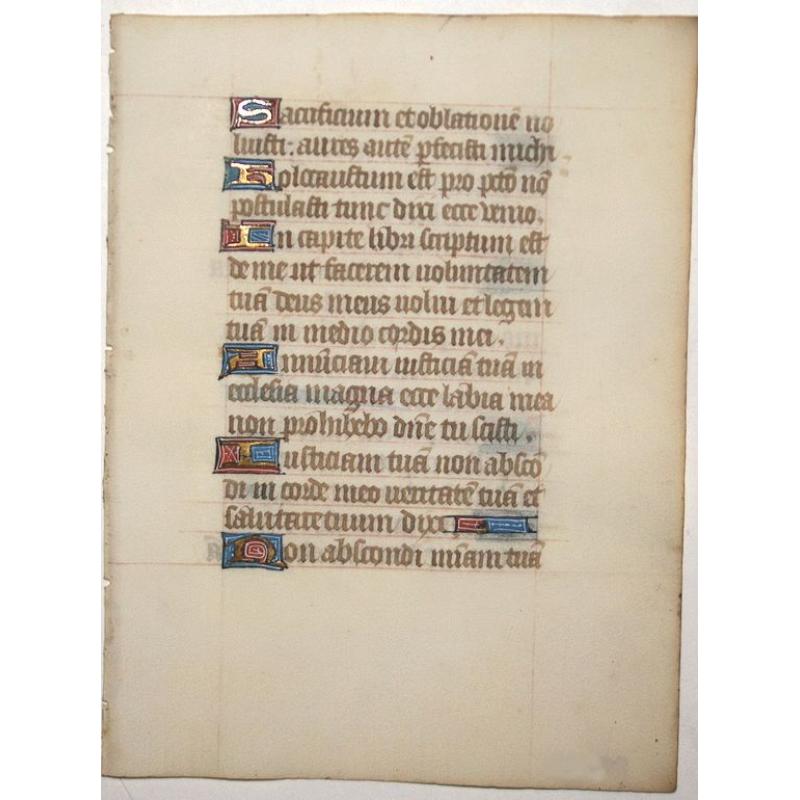 Sacrificium et oblationē no
luisti: aures autē ꝑfecisti michi
Holocaustum est pro pctō nō
postulasti tunc dixi ecce venio.
In capite libri scriptum est
de me ut facerem uoluntatem
tuā deus meus uolui et legem
tuā in medio cordis mei.
Annūciaui iusticiā tuā in
ecclesia magna ecce labia mea
non prohibebo dn̄e tu scisti.
Iusticiam tuā non abscō
di in corde meo ueritatē tuā et
salutare tuum dixi.
Non abscondi miām tuā